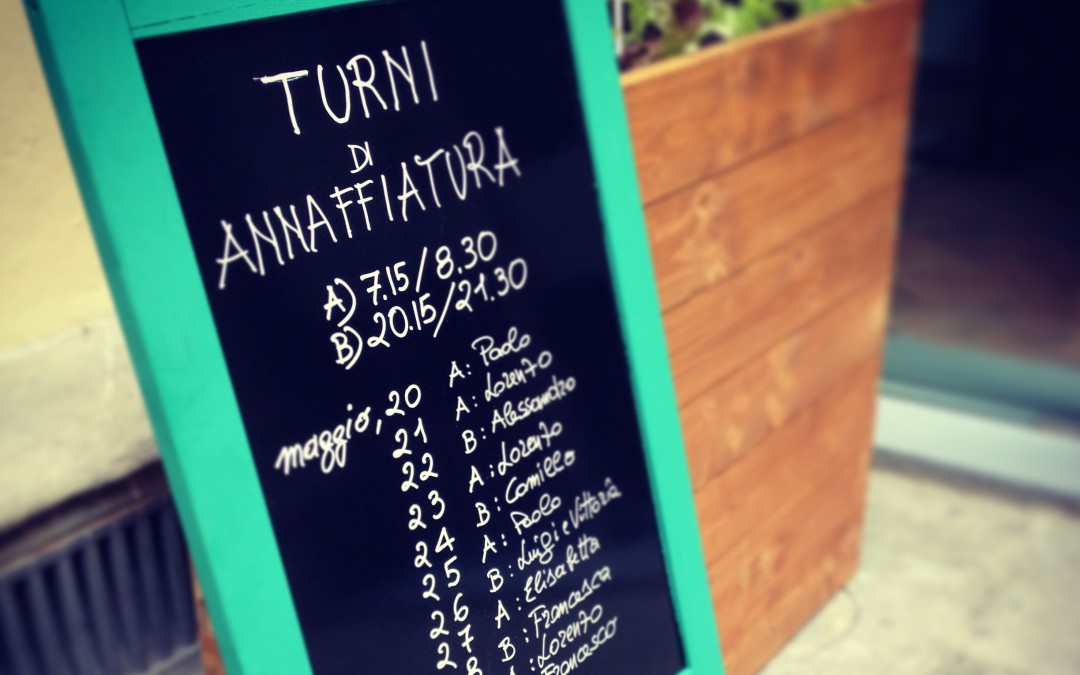 TURNI
DI
ANNAFFIATURA
A) 7.15/8.30
B) 20.15/21.30
maggio, 20 A: Paolo
21 A: Lorenzo
22 B: Alessandro
23 A: Lorenzo
24 B: Camillo
25 A: Paolo
26 B: Luigi e Vittoria
27 A: Elisabetta
B: Francesca
: Lorenzo
Francesco